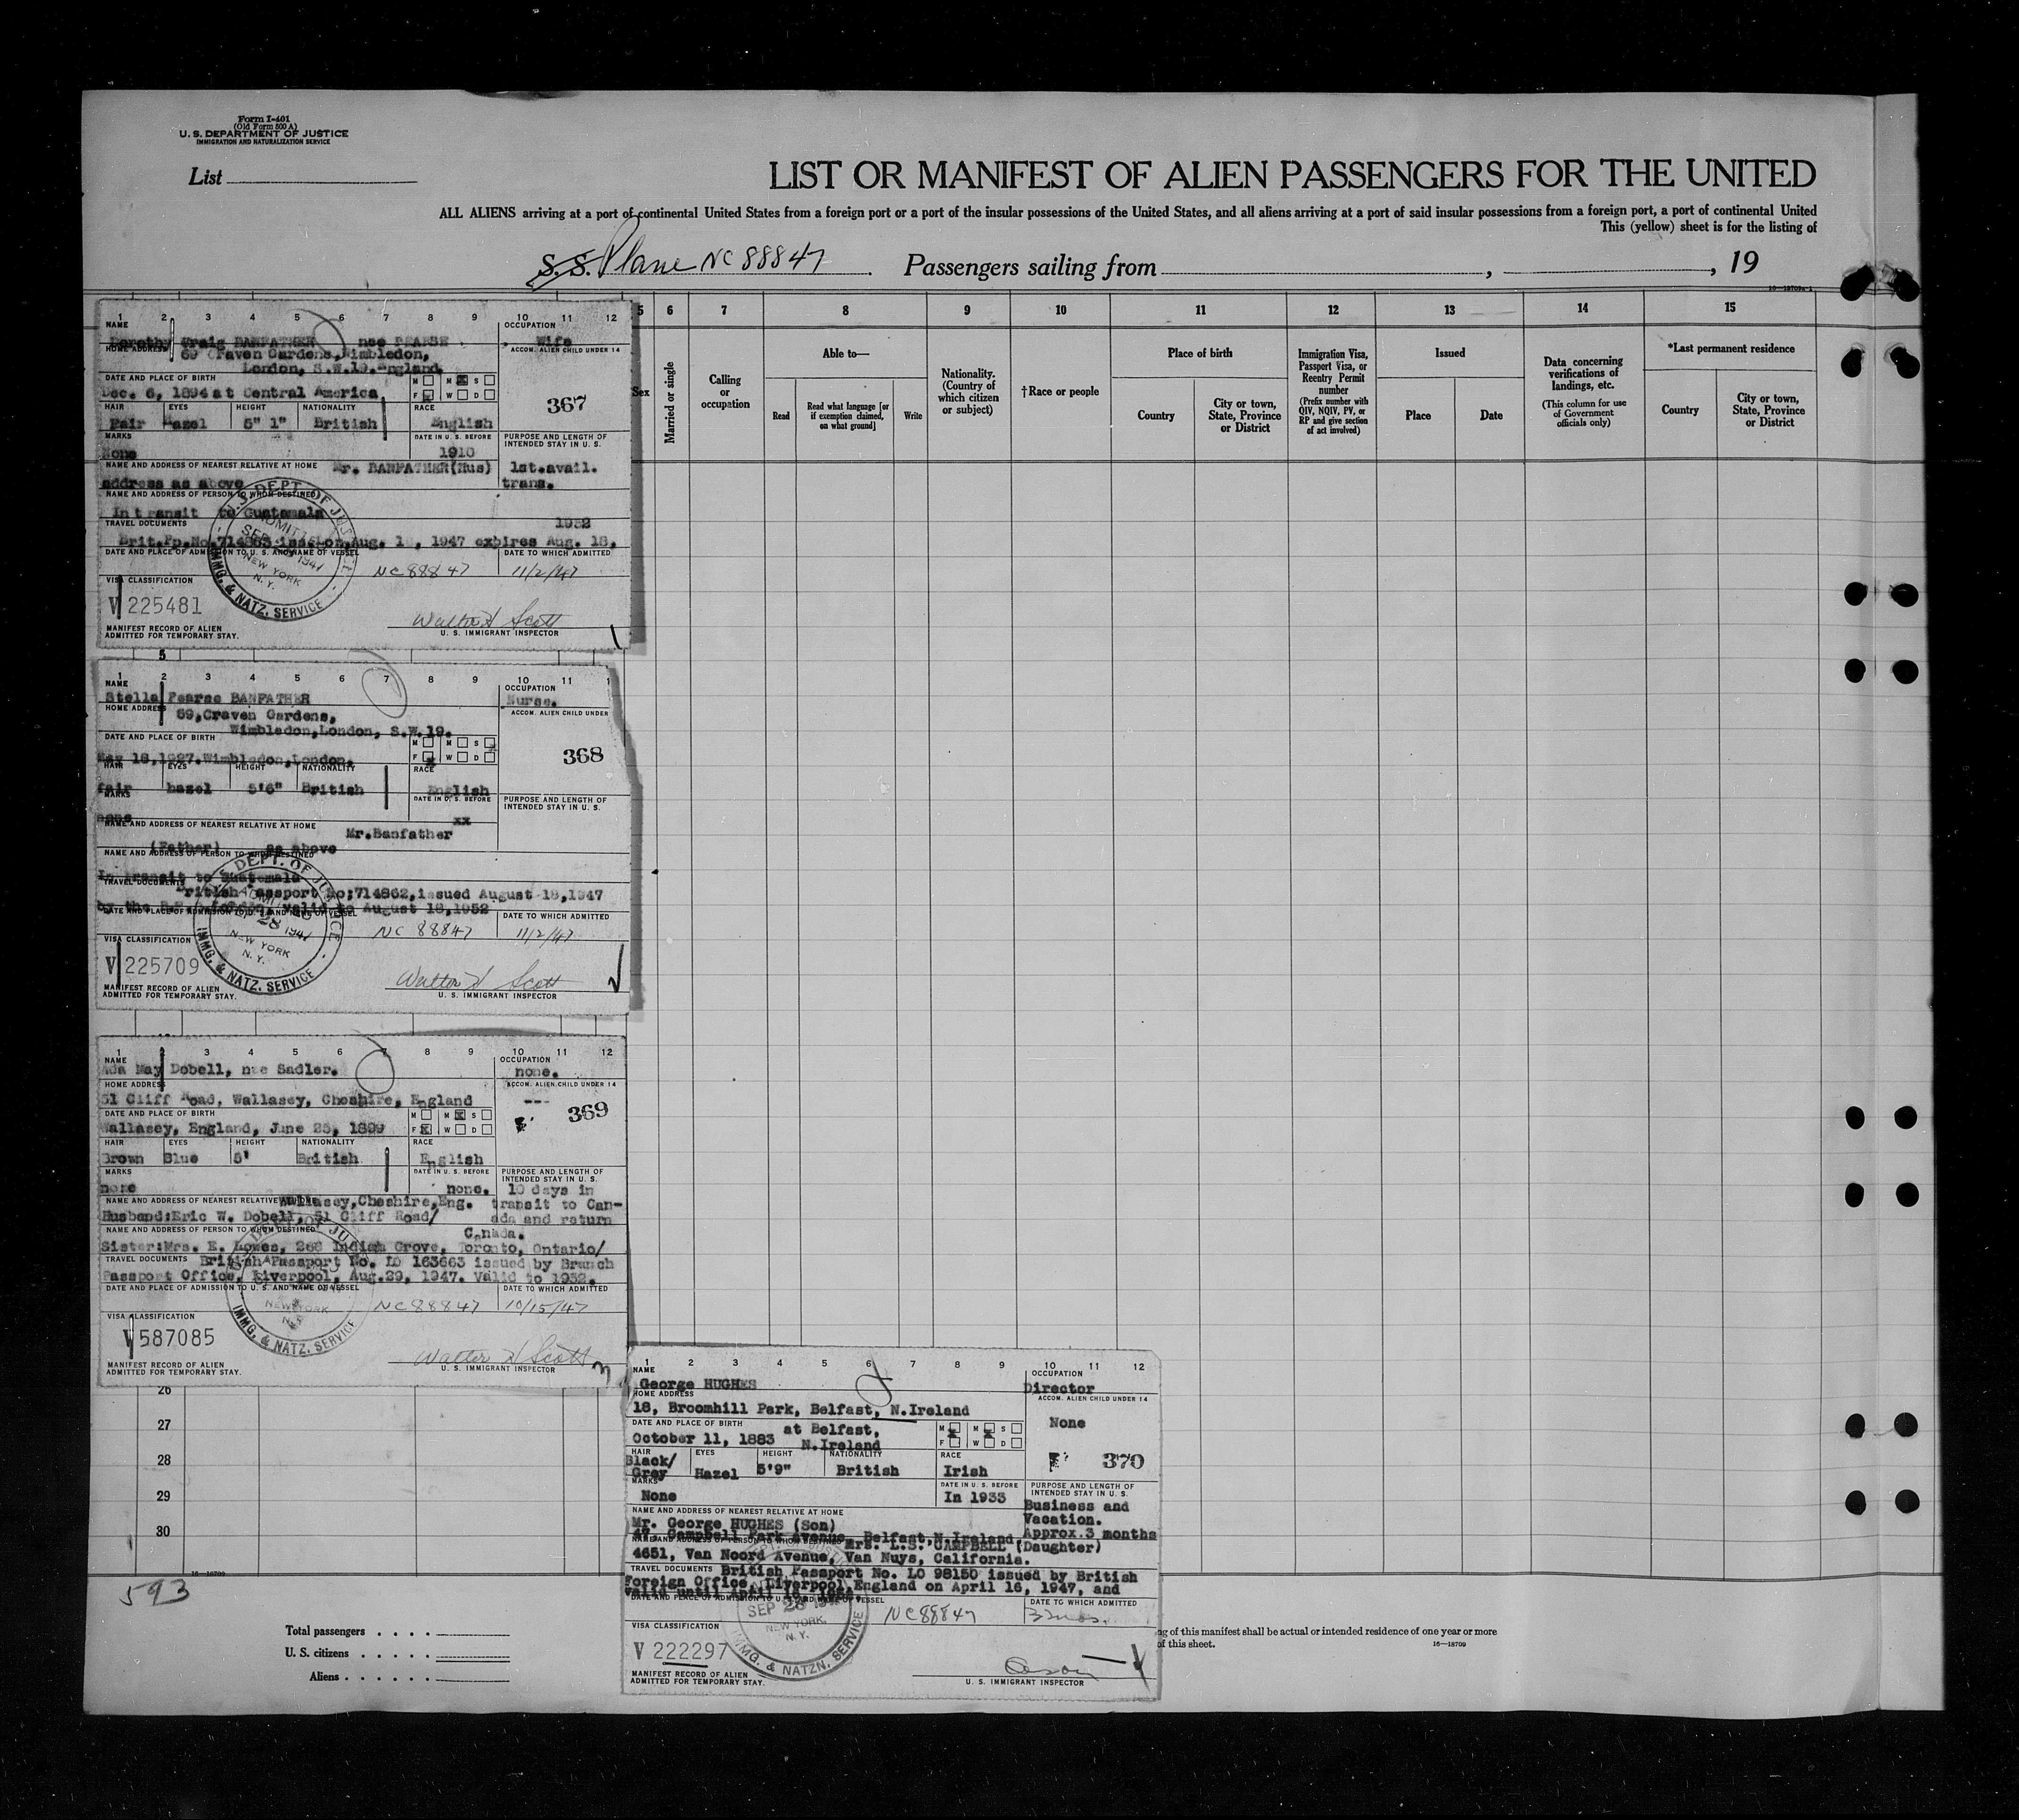 Form I-401
(Old Form 500 A)
U. S. DEPARTMENT OF JUSTICE
IMMIGRATION AND NATURALIZATION SERVICE
List
LIST OR MANIFEST OF ALIEN PASSENGERS FOR THE UNITED
ALL ALIENS arriving at a port of continental United States from a foreign port or a port of the insular possessions of the United States, and all aliens arriving at a port of said insular possessions from a foreign port, a port of continental United
This (yellow) sheet is for the listing of
S. S. Plane NC 88847 Passengers sailing from , , 19
5 6 7 8 9 10 11 12 13 14 15
Sex
Married or single
Calling or occupation
Able to—
Read
Read what language [or if exemption claimed, on what ground]
Write
Nationality. (Country of which citizen or subject)
†Race or people
Place of birth
Country
City or town, State, Province or District
Immigration Visa, Passport Visa, or Reentry Permit number
(Prefix number with QIV, NQIV, PV, or RP and give section of act involved)
Issued
Place
Date
Data concerning verifications of landings, etc.
(This column for use of Government officials only)
*Last permanent residence
Country
City or town, State, Province or District
1 2 3 4 5 6 7 8 9 10 11 12
NAME
OCCUPATION
Dorothy Craig BANFATHER nee PEARSE
Wife
HOME ADDRESS
69 Craven Gardens, Wimbledon,
ACCOM. ALIEN CHILD UNDER 14
London, S.W.19. England
DATE AND PLACE OF BIRTH
M M S
Dec. 6, 1894 at Central America
F W D
367
HAIR EYES HEIGHT NATIONALITY RACE
Fair Hazel 5" 1" British English
MARKS
DATE IN U. S. BEFORE
PURPOSE AND LENGTH OF INTENDED STAY IN U. S.
None
1910
NAME AND ADDRESS OF NEAREST RELATIVE AT HOME
Mr. BANFATHER(Hus)
1st.avail.
address as above
trans.
NAME AND ADDRESS OF PERSON TO WHOM DESTINED
In transit to Guatemala
TRAVEL DOCUMENTS
1952
Brit.Pp.No.714863 iss. on Aug. 18, 1947 expires Aug. 18,
DATE AND PLACE OF ADMISSION TO U. S. AND NAME OF VESSEL
DATE TO WHICH ADMITTED
NC 88847 11/2/47
VISA CLASSIFICATION
V 225481
Walter H Scott
MANIFEST RECORD OF ALIEN
ADMITTED FOR TEMPORARY STAY.
U. S. IMMIGRANT INSPECTOR
U.S. DEPT. OF JUSTICE
ADMITTED
SEP 1947
NEW YORK
N. Y.
IMMG. & NATZ. SERVICE
5
1 2 3 4 5 6 7 8 9 10 11
NAME
OCCUPATION
Stella Pearse BANFATHER
Nurse.
HOME ADDRESS
69,Craven Gardens,
ACCOM. ALIEN CHILD UNDER
Wimbledon,London, S.W.19.
DATE AND PLACE OF BIRTH
M M S
May 18,1927.Wimbledon,London.
F W D
368
HAIR EYES HEIGHT NATIONALITY RACE
fair hazel 5'6" British English
MARKS
DATE IN U. S. BEFORE
PURPOSE AND LENGTH OF INTENDED STAY IN U. S.
none
xx
NAME AND ADDRESS OF NEAREST RELATIVE AT HOME
Mr.Banfather
(Father) as above
NAME AND ADDRESS OF PERSON TO WHOM DESTINED
In transit to Guatemala
TRAVEL DOCUMENTS
British Passport No;714862,issued August 18,1947
valid to August 18,1952
DATE AND PLACE OF ADMISSION TO U. S. AND NAME OF VESSEL
DATE TO WHICH ADMITTED
NC 88847 11/2/47
VISA CLASSIFICATION
V 225709
Walter H Scott
MANIFEST RECORD OF ALIEN
ADMITTED FOR TEMPORARY STAY.
U. S. IMMIGRANT INSPECTOR
DEPT. OF JUSTICE
28 1947
NEW YORK
N. Y.
IMMG. & NATZ. SERVICE
1 2 3 4 5 6 7 8 9 10 11 12
NAME
OCCUPATION
Ada May Dobell, nee Sadler.
none.
HOME ADDRESS
ACCOM. ALIEN CHILD UNDER 14
51 Cliff Road, Wallasey, Cheshire, England
---
DATE AND PLACE OF BIRTH
M M S
Wallasey, England, June 25, 1899
F W D
369
HAIR EYES HEIGHT NATIONALITY RACE
Brown Blue 5' British English
MARKS
DATE IN U. S. BEFORE
PURPOSE AND LENGTH OF INTENDED STAY IN U. S.
none
none.
10 days in
NAME AND ADDRESS OF NEAREST RELATIVE
Wallasey,Cheshire,Eng.
transit to Can-
Husband:Eric W. Dobell, 51 Cliff Road/
ada and return
NAME AND ADDRESS OF PERSON TO WHOM DESTINED
Canada.
Sister:Mrs. E. Lowes, 268 Indian Grove, Toronto, Ontario/
TRAVEL DOCUMENTS
British Passport No. LO 163663 issued by Branch
Passport Office, Liverpool, Aug.29, 1947. Valid to 1952.
DATE AND PLACE OF ADMISSION TO U. S. AND NAME OF VESSEL
DATE TO WHICH ADMITTED
NC 88847 10/15/47
VISA CLASSIFICATION
V 587085
Walter H Scott
MANIFEST RECORD OF ALIEN
ADMITTED FOR TEMPORARY STAY.
U. S. IMMIGRANT INSPECTOR
NEW YORK
IMMG. & NATZ. SERVICE
26
27
28
29
30
1 2 3 4 5 6 7 8 9 10 11 12
NAME
OCCUPATION
George HUGHES
Director
HOME ADDRESS
ACCOM. ALIEN CHILD UNDER 14
18, Broomhill Park, Belfast, N.Ireland
None
DATE AND PLACE OF BIRTH
at Belfast,
M M S
October 11, 1883 N.Ireland
F W D
370
HAIR EYES HEIGHT NATIONALITY RACE
Black/
Grey Hazel 5'9" British Irish
MARKS
DATE IN U. S. BEFORE
PURPOSE AND LENGTH OF INTENDED STAY IN U. S.
None
In 1933
Business and
Vacation.
Approx.3 months
NAME AND ADDRESS OF NEAREST RELATIVE AT HOME
Mr. George HUGHES (Son)
47, Campbell Park Avenue, Belfast,N.Ireland.
NAME AND ADDRESS OF PERSON TO WHOM DESTINED
Mrs. L.S. CAMPBELL (Daughter)
4651, Van Noord Avenue, Van Nuys, California.
TRAVEL DOCUMENTS
British Passport No. LO 98150 issued by British
Foreign Office, Liverpool,England on April 16, 1947, and
valid until April
DATE AND PLACE OF ADMISSION TO U. S. AND NAME OF VESSEL
DATE TO WHICH ADMITTED
NC88847 3 mos.
VISA CLASSIFICATION
V 222297
MANIFEST RECORD OF ALIEN
ADMITTED FOR TEMPORARY STAY.
U. S. IMMIGRANT INSPECTOR
SEP 28
NEW YORK,
N. Y.
IMMG. & NATZN. SERVICE
16—18709
593
Total passengers
U. S. citizens
Aliens
of this manifest shall be actual or intended residence of one year or more
of this sheet.
16—18709